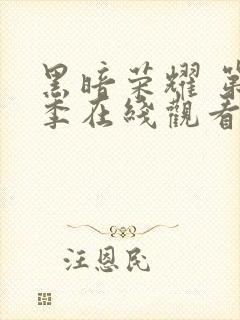 黑暗荣耀 第
季在线觀看
汪恩民